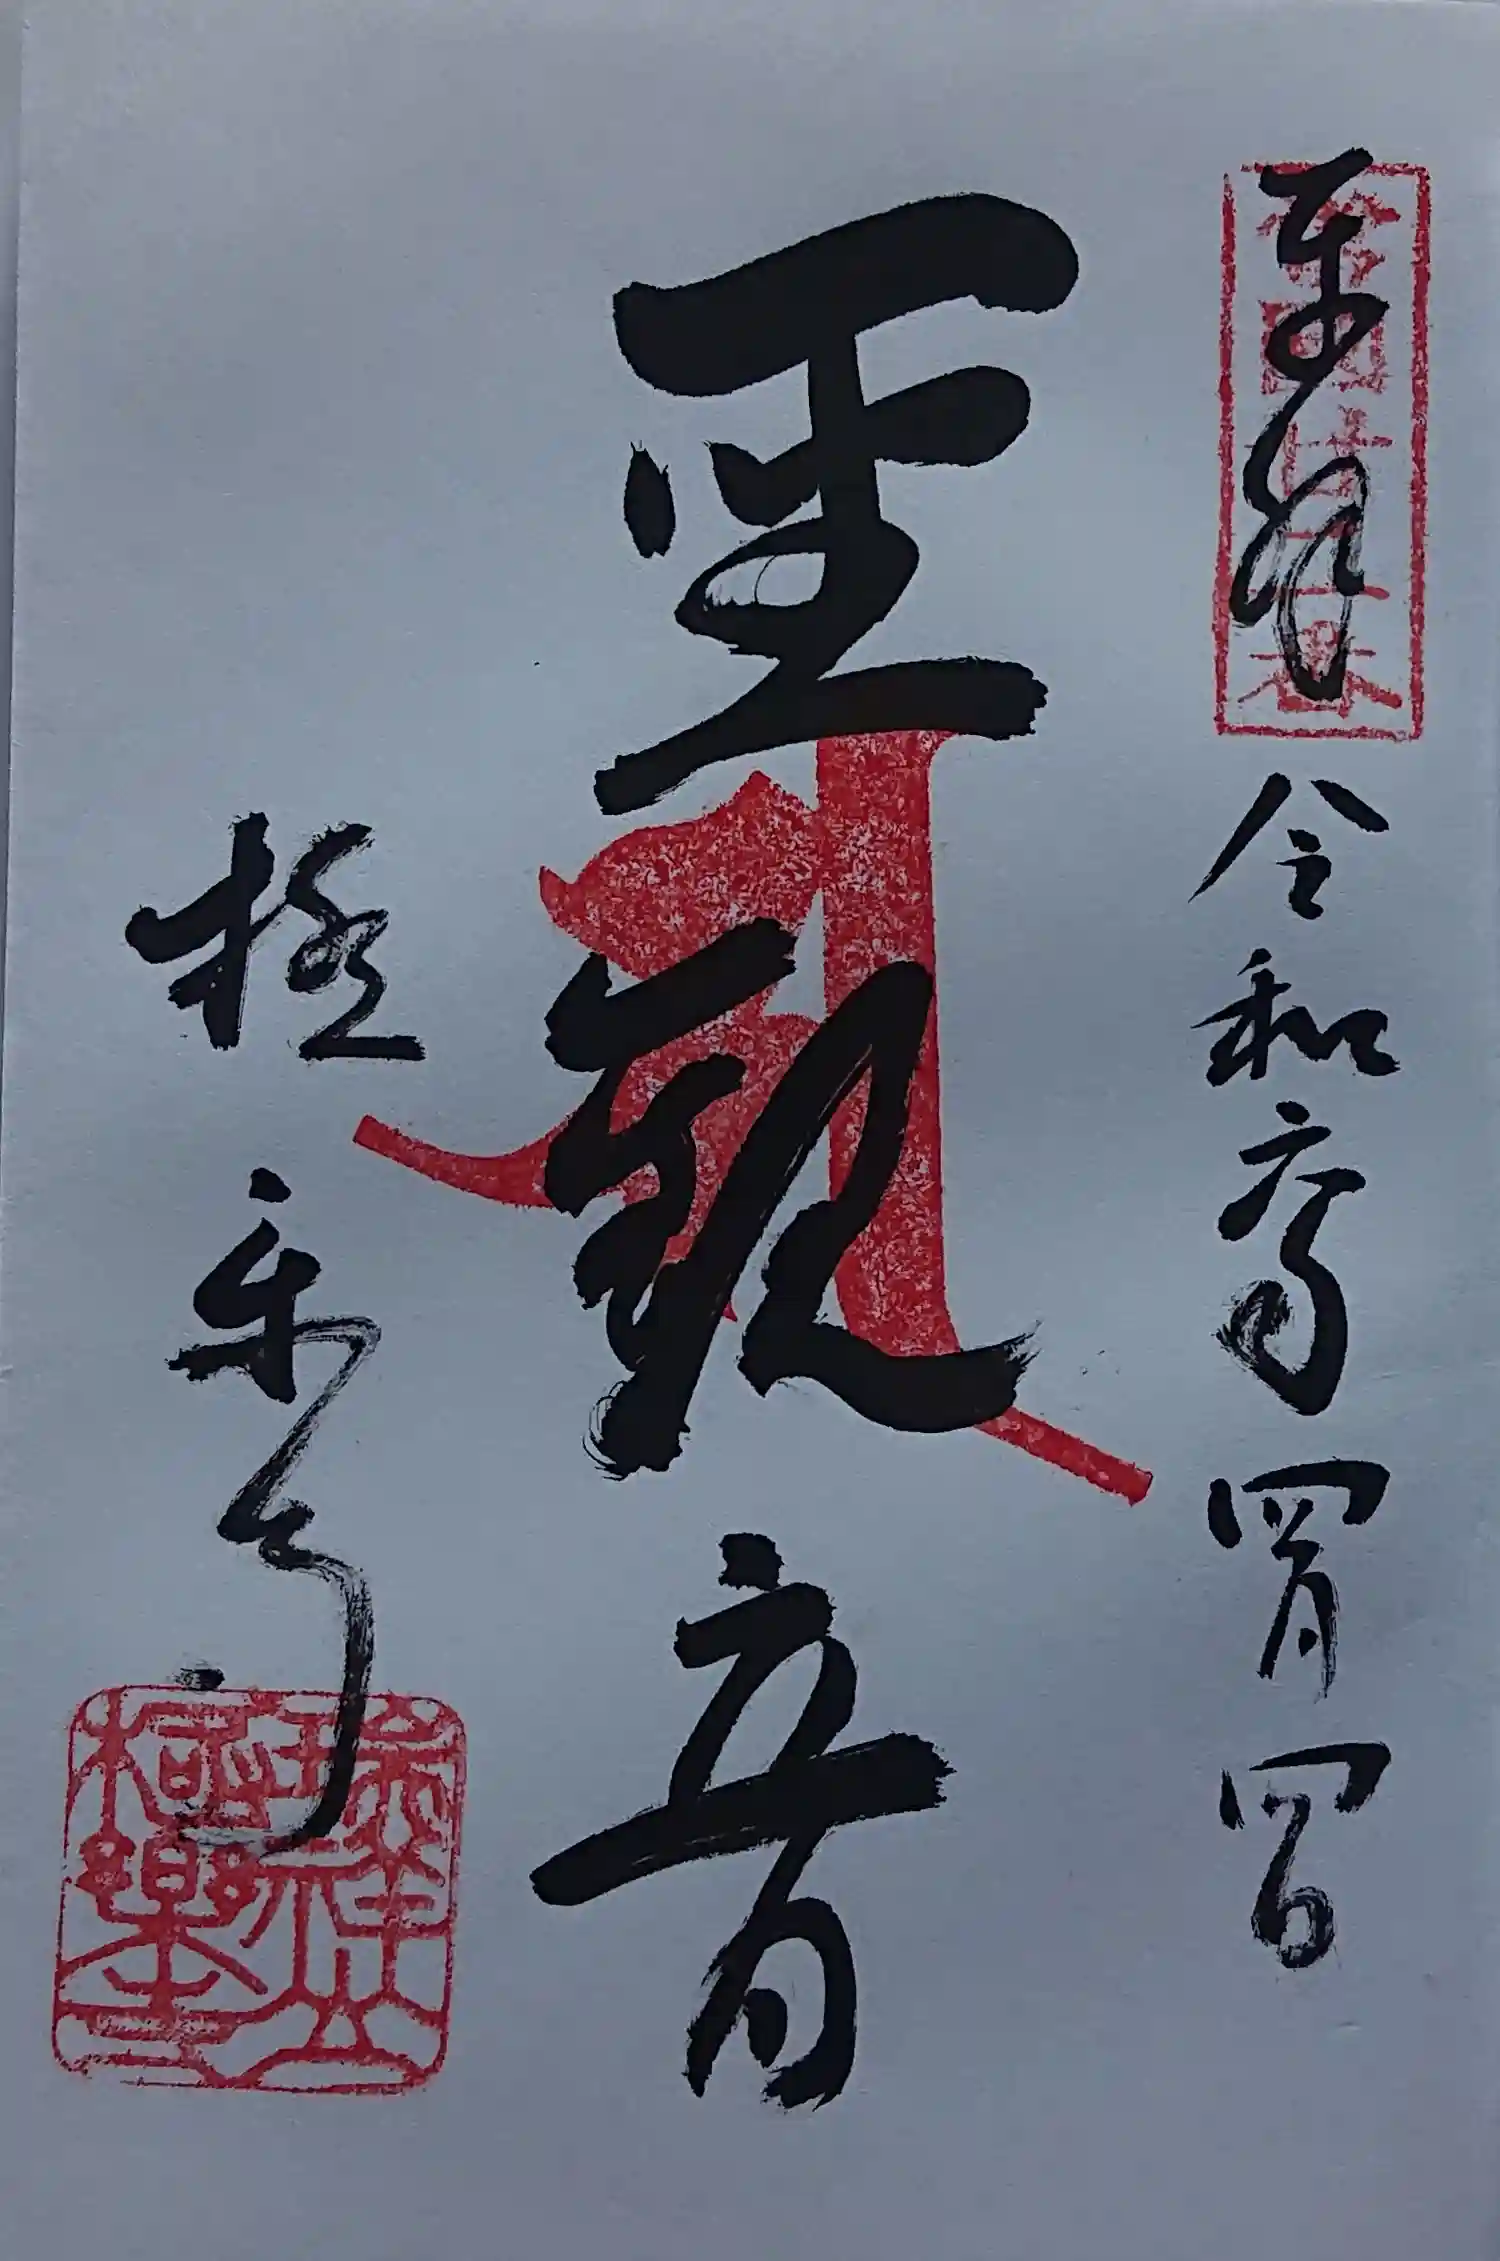 奉拝 令和六年四月四日
聖観音
極楽寺
瑞祥山
極楽寺